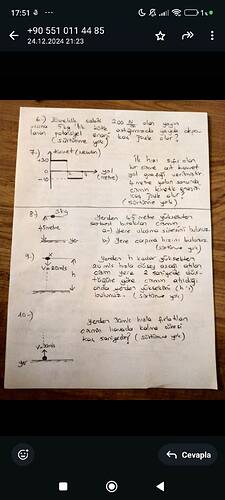 17:51
+90 551 011 44 85
24.12.2024 21:23
6-) Esneklik sabiti 200 N/m olan yayın
ucuna 5kg lik kütle
lanan potansiyel enerji kaç joule olur?
(sürtünme yok)
7-) kuvvet (newton)
+30
0
-10
yol
(metre)
İlk hızı sıfır olan
bir cisme ait kuvvet
yol grafiği verilmiştir.
metre yolun sonunda
cismin kinetik enerjisi
kaç joule olur?
(sürtünme yok)
8-) 3kg
45 metre
yer
Yerden 45 metre yüksekten
serbest bırakılan cismin
a-) Yere ulaşma süresini bulunuz.
b-) Yere çarpma hızını bulunuz.
(sürtünme yok)
9-)
V=20m/s
h
yer
Yerden h kadar yüksekten
20 m/s hızla düşey aşağı atılan
cisim yere 2 saniyede düş-
tüğüne göre cismin atıldığı
anda yerden yüksekliği (h'ı)
bulunuz. (sürtünme yok)
10-)
V=30m/s
yer
Yerden 30m/s hızla fırlatılan
cismin havada kalma süresi
kaç saniyedir? (sürtünme yok)
Cevapla